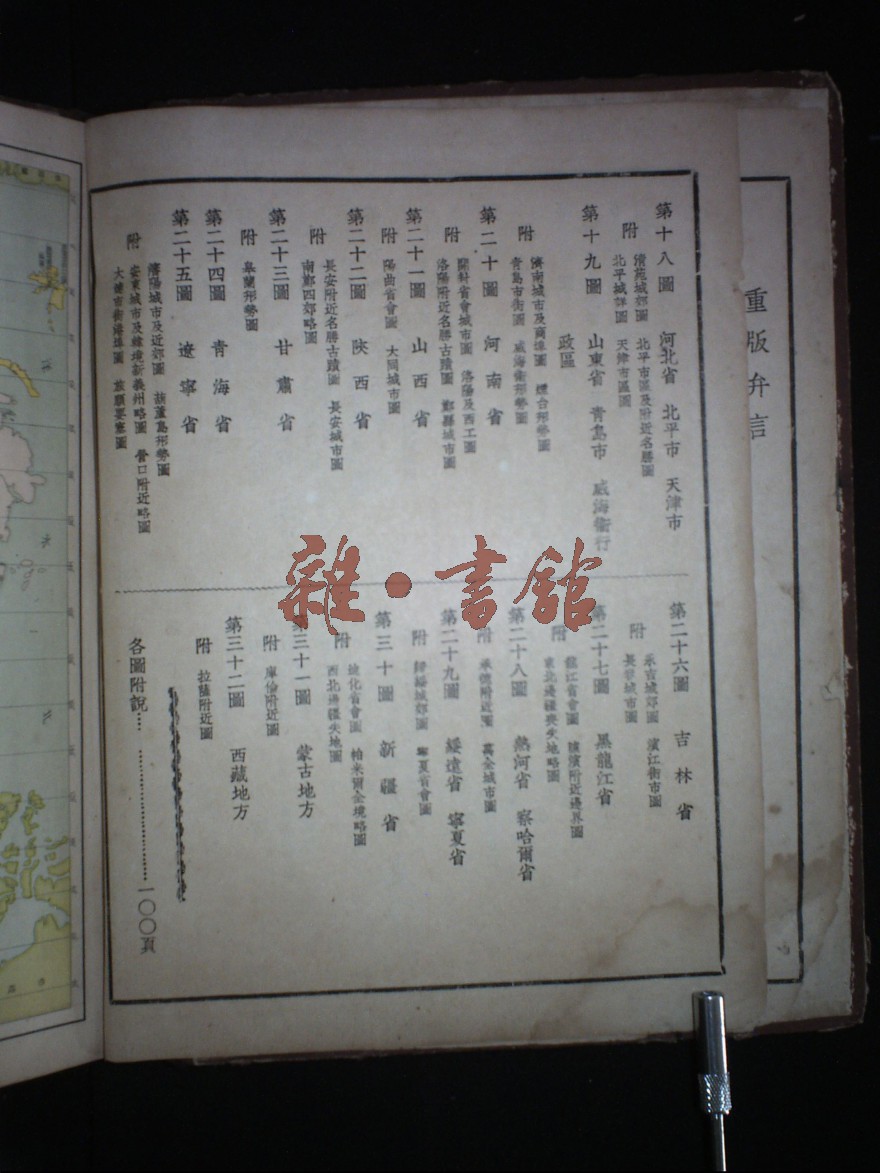 重版弁言
第十八圖 河北省 北平市 天津市
附 清苑城郊圖 北平市區及附近名勝圖
北平城郊圖 天津市區圖
第十九圖 山東省 青島市 威海衛行
政區
附 濟南城市及商埠圖 煙台形勢圖
青島市街圖 威海衛形勢圖
第二十圖 河南省
附 開封省會城市圖 洛陽及西工圖
洛陽附近名勝古蹟圖 鄭縣城市圖
第二十一圖 山西省
附 陽曲省會圖 大同城市圖
第二十二圖 陝西省
長安附近名勝古蹟圖 長安城市圖
附 南鄭四郊略圖
第二十三圖 甘肅省
附 皋蘭形勢圖
第二十四圖 青海省
第二十五圖 遼寧省
瀋陽城市及近郊圖 葫蘆島形勢圖
附 安東城市及緣境新義州略圖 營口附近略圖
大連市街港埠圖 旅順要塞圖
第二十六圖 吉林省
附 永吉城郊圖 濱江街市圖
長春城市圖
第二十七圖 黑龍江省
附 龍江省會圖 臚濱附近邊界圖
東北邊疆喪失地略圖
第二十八圖 熱河省 察哈爾省
附 承德附近圖 萬全城市圖
第二十九圖 綏遠省 寧夏省
附 歸綏城郊圖 寧夏省會圖
第三十圖 新疆省
附 迪化省會圖 帕米爾全境略圖
西北邊疆失地圖
第三十一圖 蒙古地方
附 庫倫附近圖
第三十二圖 西藏地方
附 拉薩附近圖
各圖附說……一〇〇頁
雜·書館